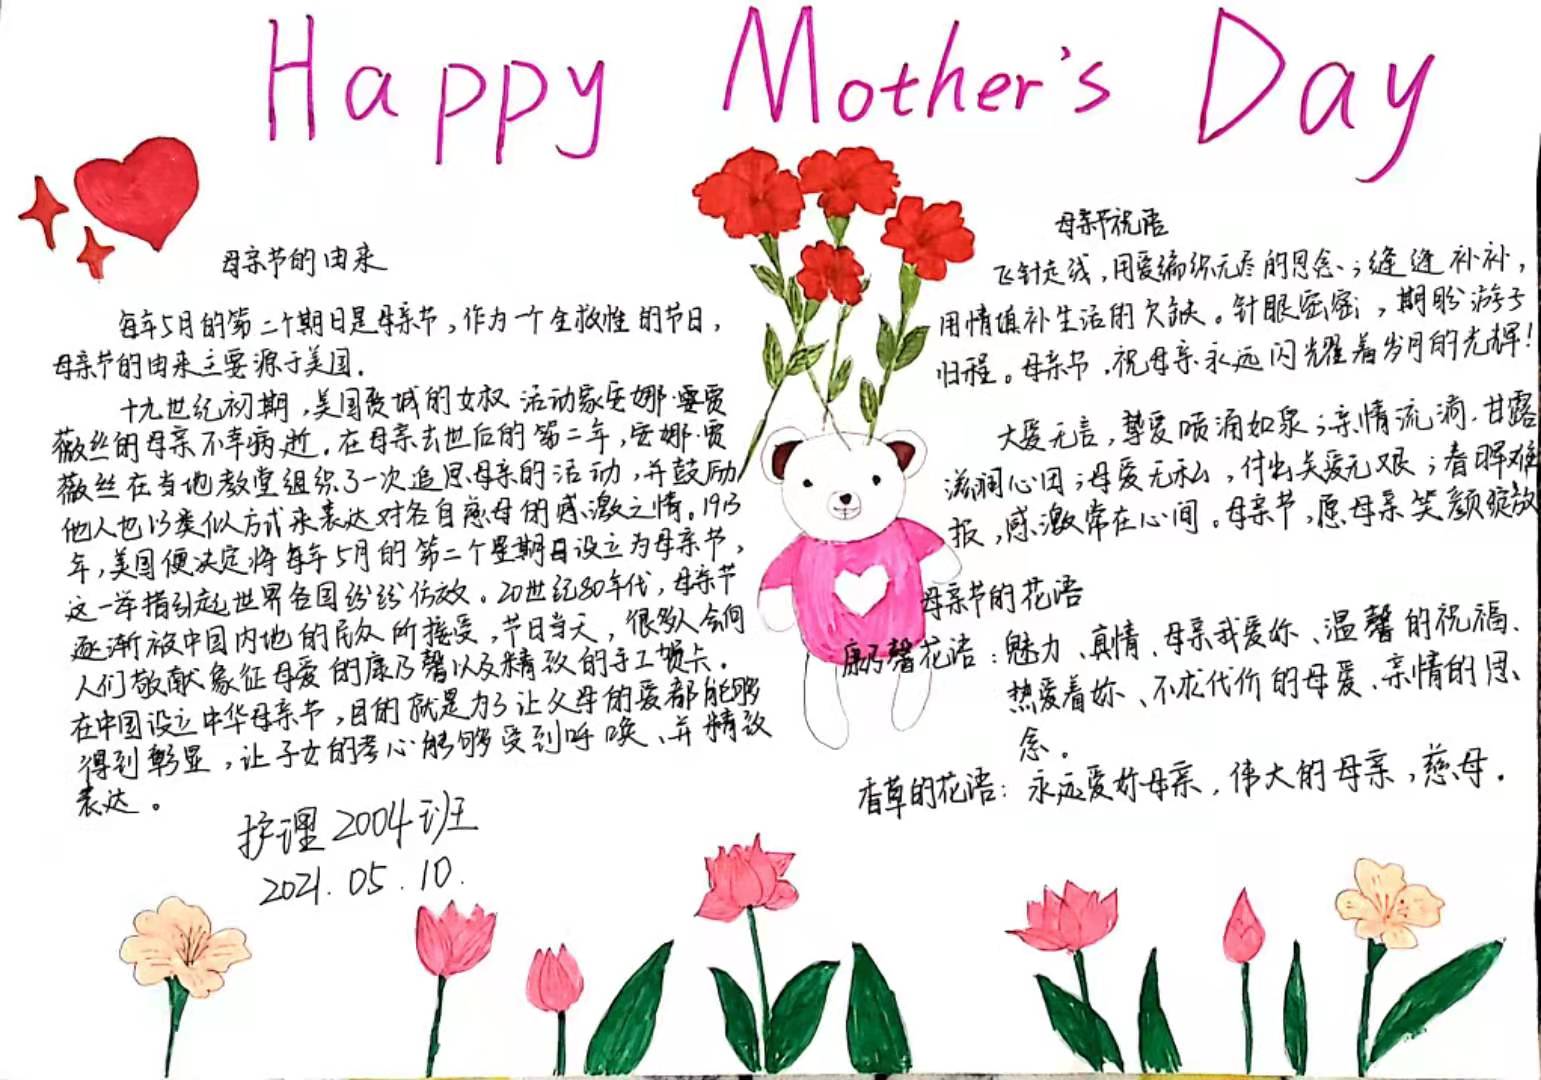 Happy Mother's Day
母亲节的由来
每年5月的第二个期日是母亲节，作为一个全救性的节日，
母亲节的由来主要源于美国.
十九世纪初期，美国费城的女权活动家安娜·雯贾
薇丝的母亲不幸病逝.在母亲去世后的第二年，安娜·贾
薇丝在当地教堂组织了一次追思母亲的活动，并鼓励
他人也以类似方式来表达对各自慈母的感激之情。1913
年，美国便决定将每年5月的第二个星期日设立为母亲节，
这一举措引起世界各国纷纷仿效。20世纪80年代，母亲节
逐渐被中国内地的民众所接受，节日当天，很多人会向
人们敬献象征母爱的康乃馨以及精致的手工贺卡.
在中国设立中华母亲节，目的就是为了让父母的爱都能够
得到彰显，让子女的孝心能够受到呼唤、并精致
表达。
护理2004班
2021.05.10.
母亲节祝语
飞针走线，用爱编织无尽的思念；缝缝补补，
用情填补生活的欠缺。针眼密密，期盼游子
归程。母亲节，祝母亲永远闪光耀着岁月的光辉！
大爱无言，挚爱喷涌如泉；亲情流淌.甘露
滋润心田；母爱无私，付出关爱无限；春晖难
报，感激常在心间。母亲节，愿母亲笑颜绽放
母亲节的花语
康乃馨花语：魅力、真情、母亲我爱你、温馨的祝福、
热爱着妳、不求代价的母爱、亲情的思
念。
香草的花语：永远爱妳母亲，伟大的母亲，慈母.